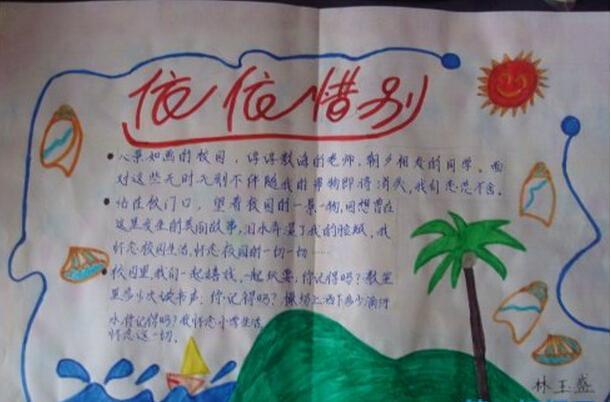 依依惜别
八景如画的校园，谆谆教诲的老师，朝夕相处的同学。面
对这些无时无刻不伴随我的事物即将消失，我们恋恋不舍。
站在校门口，望着校园的一景一物，回想曾在
这里发生的美丽故事，泪水弄湿了我的脸颊。我
怀念校园生活，怀念校园的一切一切……
校园里我们一起嬉戏，一起玩耍，你记得吗？教室
里多少次读书声，你记得吗？操场上洒下多少滴汗
水你记得吗？我怀念小学生活
怀念这一切。
林玉盛